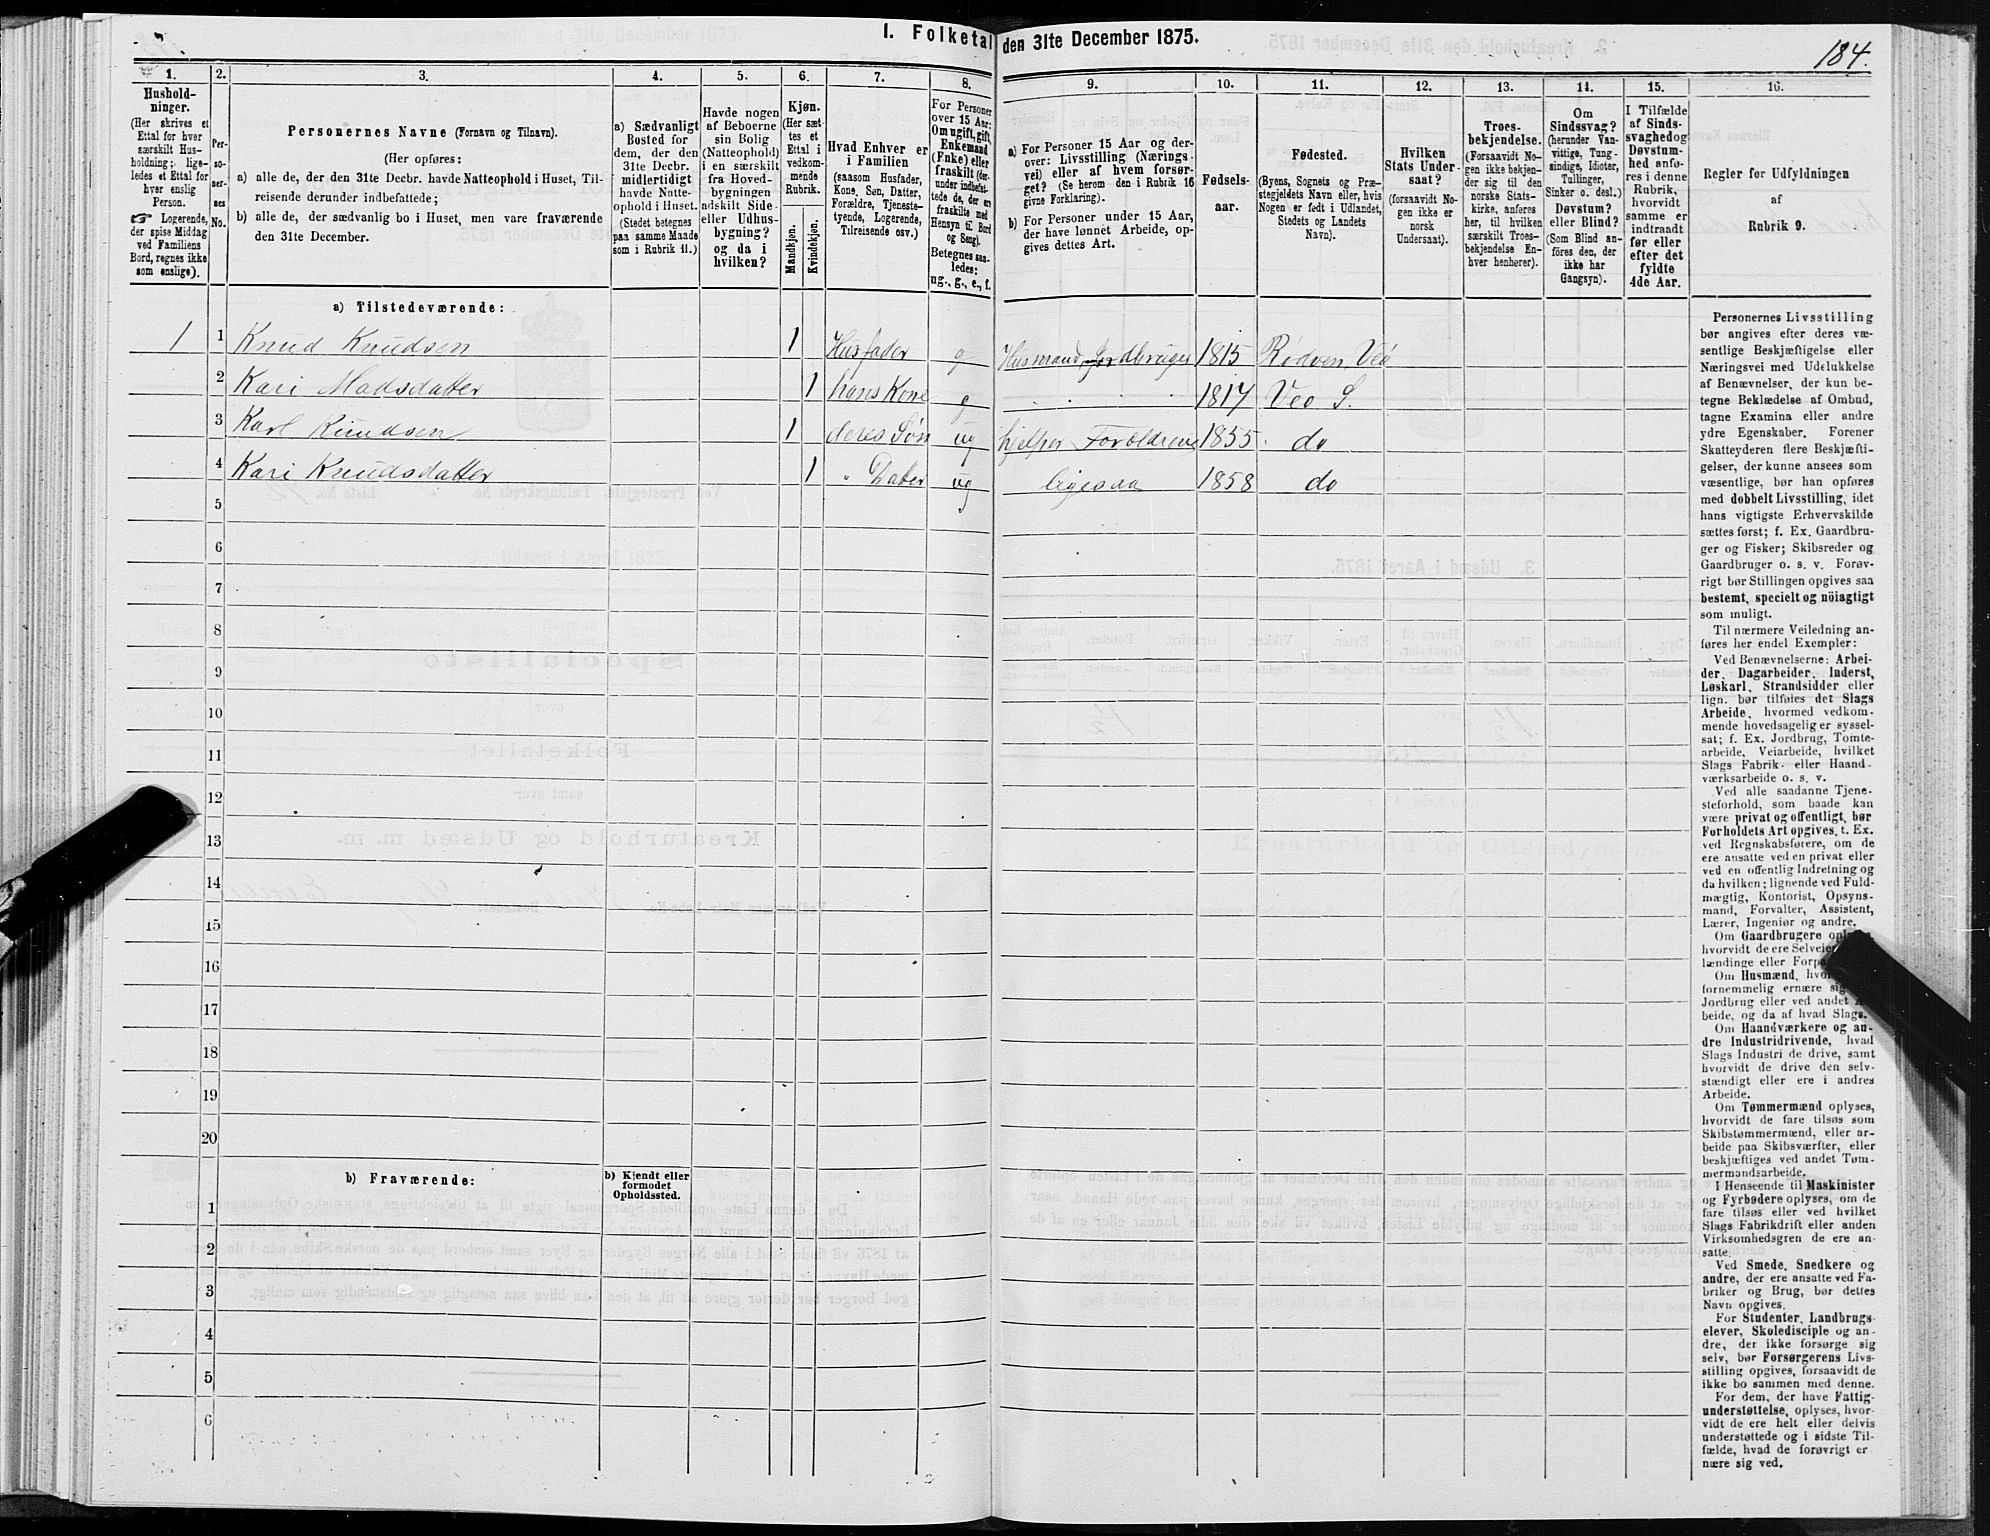 I. Folketal den 31te December 1875.
184.
1.
Hushold-
ninger.
(Her skrives et
Ettal for hver
særskilt Hus-
holdning; lige-
ledes et Ettal for
hver enslig
Person.
☞ Logerende,
der spise Middag
ved Familiens
Bord, regnes ikke
som enslige).
2.
Per-
so-
ner-
nes
No.
3.
Personernes Navne (Fornavn og Tilnavn).
(Her opføres:
a) alle de, der den 31te Decbr. havde Natteophold i Huset, Til-
reisende derunder indbefattede;
b) alle de, der sædvanlig bo i Huset, men vare fraværende
den 31te December.
4.
a) Sædvanligt
Bosted for
dem, der den
31te Decbr.
midlertidigt
havde Natte-
ophold i Huset.
(Stedet betegnes
paa samme Maade
som i Rubrik 11.)
5.
Havde nogen
af Beboerne
sin Bolig
(Natteophold)
i en særskilt
fra Hoved-
bygningen
adskilt Side-
eller Udhus-
bygning?
og da i
hvilken?
6.
Kjøn.
(Her sæt-
tes et
Ettal i
vedkom-
mende
Rubrik.
Mandkjøn.
Kvindekjøn.
7.
Hvad Enhver er
i Familien
(saasom Husfader,
Kone, Søn, Datter,
Forældre, Tjeneste-
tyende, Logerende,
Tilreisende osv.)
8.
For Personer
over 15 Aar:
Om ugift, gift,
Enkemand
(Enke) eller
fraskilt (der-
under indbefat-
tede de, der ere
fraskilte med
Hensyn til Bord
og Seng).
Betegnes saa-
ledes:
ug., g., e., f.
9.
a) For Personer 15 Aar og der-
over: Livsstilling (Nærings-
vei) eller af hvem forsør-
get? (Se herom den i Rubrik 16
givne Forklaring).
b) For Personer under 15 Aar,
der have lønnet Arbeide, op-
gives dettes Art.
10.
Fødsels-
aar.
11.
Fødested.
(Byens, Sognets og Præ-
stegjeldets Navn eller, hvis
Nogen er født i Udlandet,
Stedets og Landets
Navn).
12.
Hvilken
Stats Under-
saat?
(forsaavidt No-
gen ikke er
norsk
Undersaat).
13.
Troes-
bekjendelse.
(Forsaavidt No-
gen ikke bekjen-
der sig til den
norske Stats-
kirke, anføres
her, til hvilken
særskilt Troes-
bekjendelse En-
hver henhører).
14.
Om
Sindssvag?
(herunder Van-
vittige, Tung-
sindige, Idioter,
Tullinger,
Sinker o. desl.)
Døvstum?
eller Blind?
(Som Blind an-
føres den, der
ikke har
Gangsyn).
15.
I Tilfælde
af Sinds-
svaghed og
Døvstum-
hed anfø-
res i denne
Rubrik,
hvorvidt
samme er
indtraadt
før eller
efter det
fyldte
4de Aar.
16.
Regler for Udfyldningen
af
Rubrik 9.
a) Tilstedeværende:
1 1 Knud Knudsen 1 Husfader g Husmand, Jordbruger 1815 Rødven, Veø
2 Kari Madsdatter 1 hans Kone g 1817 Veø S.
3 Karl Knudsen 1 deres Søn ug hjelper Forældrene 1855 do
4 Kari Knudsdatter 1 " Datter ug ligesaa 1858 do
5
6
7
8
9
10
11
12
13
14
15
16
17
18
19
20
b) Fraværende:
b) Kjendt eller
formodet
Opholdssted.
1
2
3
4
5
6
Personernes Livsstilling
bør angives efter deres væ-
sentlige Beskjæftigelse eller
Næringsvei med Udelukkelse
af Benævnelser, der kun be-
tegne Beklædelse af Ombud,
tagne Examina eller andre
ydre Egenskaber. Forener
Skatteyderen flere Beskjæfti-
gelser, der kunne ansees som
væsentlige, bør han opføres
med dobbelt Livsstilling, idet
hans vigtigste Erhvervskilde
sættes først; f. Ex. Gaardbru-
ger og Fisker; Skibsreder og
Gaardbruger o. s. v. Forøv-
rigt bør Stillingen opgives saa
bestemt, specielt og nöiagtigt
som muligt.
Til nærmere Veiledning an-
føres her endel Exempler:
Ved Benævnelserne: Arbei-
der, Dagarbeider, Inderst,
Løskarl, Strandsidder eller
lign. bør tilføies det Slags
Arbeide, hvormed vedkom-
mende hovedsagelig er syssel-
sat; f. Ex. Jordbrug, Tomte-
arbeide, Veiarbeide, hvilket
Slags Fabrik- eller Haand-
værksarbeide o. s. v.
Ved alle saadanne Tjene-
steforhold, som baade kan
være privat og offentligt, bør
Forholdets Art opgives, t. Ex.
ved Regnskabsførere, om de
ere ansatte ved en privat eller
ved en offentlig Indretning og
da hvilken; lignende ved Fuld-
mægtig, Kontorist, Opsyns-
mand, Forvalter, Assistent,
Lærer, Ingeniør og andre.
Om Gaardbrugere oplyses,
hvorvidt de ere Selveier
lændinge eller Forp
Om Husmænd, hvor
fornemmelig ernære sig
Jordbrug eller ved andet
beide, og da af hvad Slags.
Om Haandværkere og an-
dre Industridrivende, hvad
Slags Industri de drive, samt
hvorvidt de drive den selv-
stændigt eller ere i andres
Arbeide.
Om Tømmermænd oplyses,
hvorvidt de fare tilsøs som
Skibstømmermænd, eller ar-
beide paa Skibsværfter, eller
beskjæftiges ved andet Tøm-
mermandsarbeide.
I Henseende til Maskinister
og Fyrbødere oplyses, om de
fare tilsøs eller ved hvilket
Slags Fabrikdrift eller anden
Virksomhedsgren de ere an-
satte.
Ved Smede, Snedkere og
andre, der ere ansatte ved Fa-
briker og Brug, bør dettes
Navn opgives.
For Studenter, Landbrugs-
elever, Skoledisciple og an-
dre, der ikke forsørge sig
selv, bør Forsørgerens Livs-
stilling opgives, forsaavidt de
ikke bo sammen med denne.
For dem, der have Fattig-
understøttelse, oplyses, hvor-
vidt de ere helt eller delvis
understøttede og i sidste Til-
fælde, hvad de forøvrigt er-
nære sig ved.